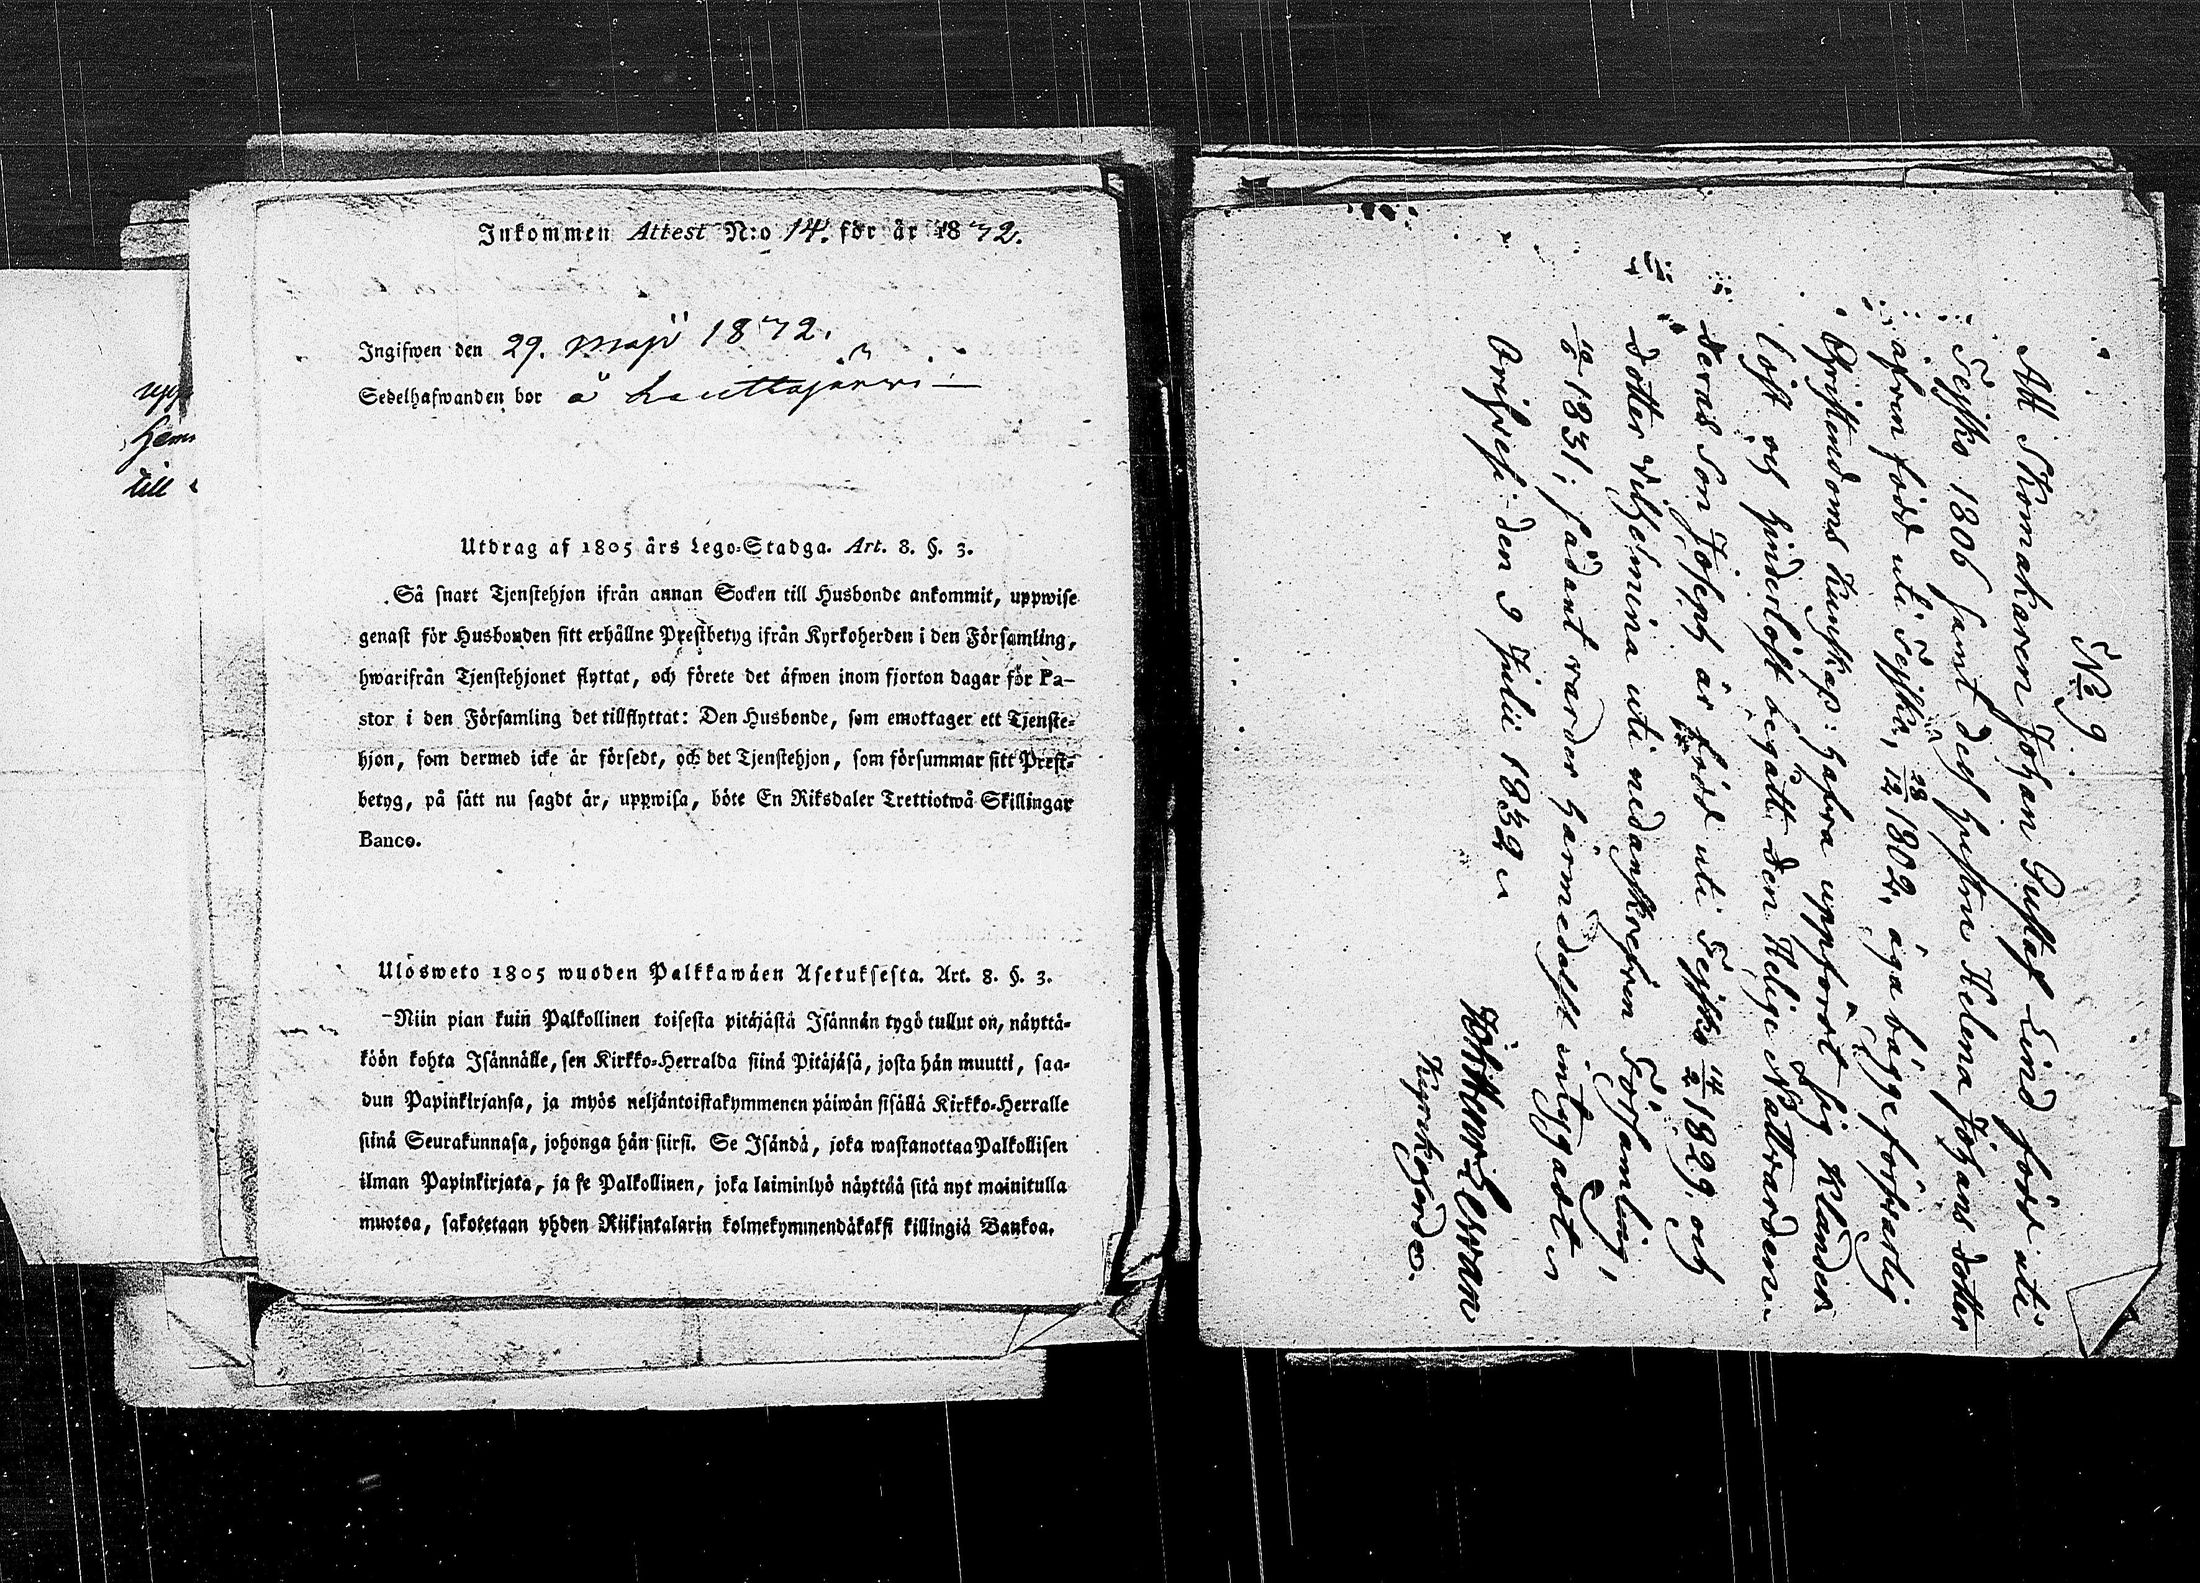 upp
hem
till
Inkommen Attest N:o 14. för år 1832.
Ingifwen den 29. Maji 1832.
Sedelhafwanden bor å Lauttajärwi
Utdrag af 1805 års Lego-Stadga. Art. 8. §. 3.
Så snart Tjenstehjon ifrån annan Socken till Husbonde ankommit, uppwise
genast för Husbonden sitt erhållne Prestbetyg ifrån Kyrkoherden i den Församling,
hwarifrån Tjenstehjonet flyttat, och förete det äfwen inom fjorton dagar för Pa-
stor i den Församling det tillflyttat: Den Husbonde, som emottager ett Tjenste-
hjon, som dermed icke är försedt, och det Tjenstehjon, som försummar sitt Prest-
betyg, på sätt nu sagdt är, uppwisa, böte En Riksdaler Trettiotwå Skillingar
Banco.
Ulösweto 1805 wuoden Palkkawäen Asetuksesta. Art. 8. §. 3.
Niin pian kuin Palkollinen toisesta pitäjästä Isännän tygö tullut on, näyttä-
köön kohta Isännälle, sen Kirkko-Herralda siinä Pitäjäsä, josta hän muutti, saa-
dun Papinkirjansa, ja myös neljäntoistakymmenen päiwän sisällä Kirkko-Herralle
siinä Seurakunnasa, johonga hän siirsi. Se Isändä, joka wastanottaa Palkollisen
ilman Papinkirjata, ja se Palkollinen, joka laiminlyö näyttää sitä nyt mainitulla
muotoa, sakotetaan yhden Riikintalarin kolmekymmendäkaksi killingiä Bankoa.
No 9
Att Skomakaren Johan Gustaf Lind född uti
Tejsko 1806 samt dess hustru Helena Johans dotter
äfven född uti Tejsko, 28/12 1802, äga bägge försvarlig
Christendoms Kunskap: hafva uppfördt sig klander
löst och hinderlöst begått den Helige Nattvarden.
deras son Joseph är född uti Tejsko 14/2 1829. och
dotter Vilhelmina uti nedanskrefven Församling,
10/6 1831; sådant varder härmedelst intygadt
Orihvesi den 9 Julii 1832
Kyrkoherde.